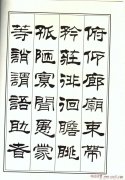 俯仰廊廟束帶
矜莊徘徊瞻眺
孤陋寡聞愚蒙
等誚謂語助者